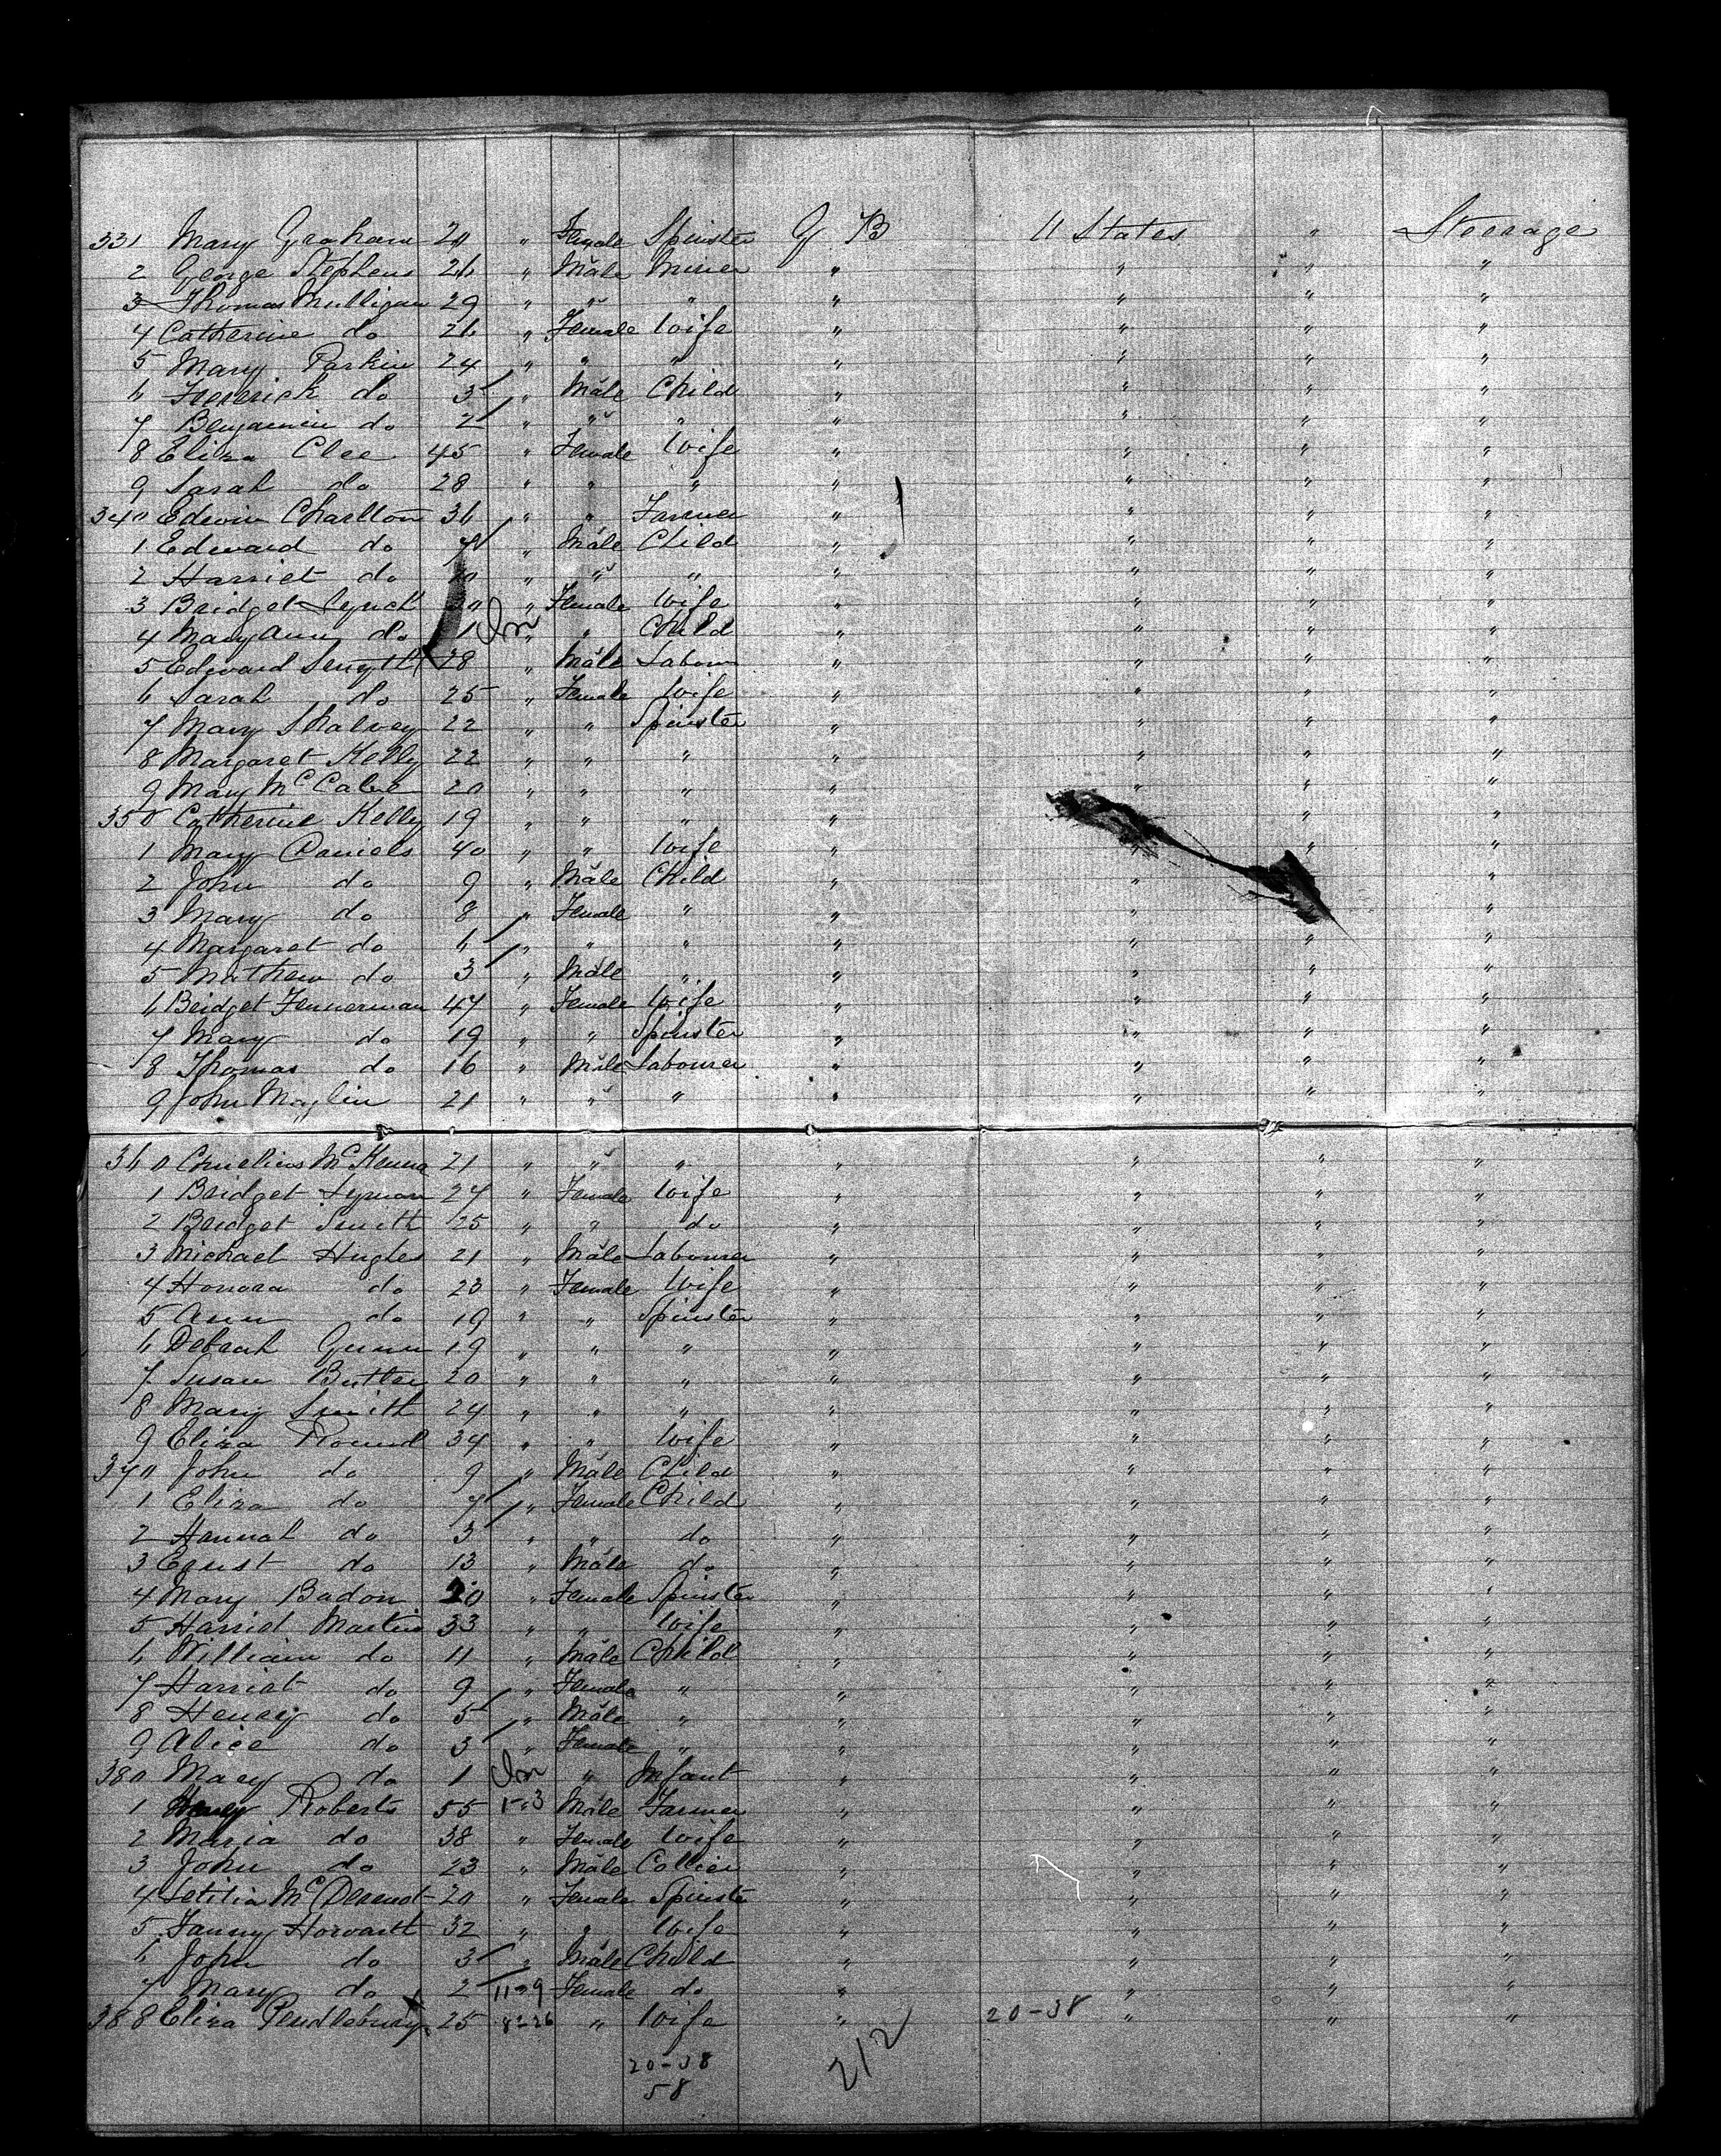 331 Mary Graham 20 " Female Spinster G B U States " Steerage
2 George Stephens 26 " Male Miner " " " "
3 Thomas Mulligan 29 " " " " " " "
4 Catherine do 26 " Female Wife " " " "
5 Mary Parkin 24 " " " " " " "
6 Frederick do 3 " Male Child " " " "
7 Benjamin do 2 " " " " " " "
8 Eliza Clee 45 " Female Wife " " " "
9 Sarah do 28 " " " " " " "
340 Edwin Charlton 36 " " Farmer " " " "
1 Edward do 7 " Male Child " " " "
2 Harriet do " " " " " " "
3 Bridget Lynch 30 " Female Wife " " " "
4 Mary Ann do 1 " " Child " " " "
5 Edward 28 " Male Labour " " " "
6 Sarah do 25 " Female Wife " " " "
7 Mary Shalvey 22 " " Spinster " " " "
8 Margaret Kelly 22 " " " " " " "
9 Mary McCabe 20 " " " " " " "
350 Catherine Kelly 19 " " " " " " "
1 Mary Daniels 40 " " Wife " " " "
2 John do 9 " Male Child " " " "
3 Mary do 8 " Female " " " " "
4 Margaret do 6 " " " " " " "
5 Mathew do 3 " Male " " " " "
6 Bridget Fennerman 47 " Female Wife " " " "
7 Mary do 19 " " Spinster " " " "
8 Thomas do 16 " Male Labourer " " " "
9 John Maglin 21 " " " " " " "
360 Cornelius McKenna 21 " " " " " " "
1 Bridget Lyman 24 " Female Wife " " " "
2 Bridget Smith 25 " " do " " " "
3 Michael Hughes 21 " Male Labourer " " " "
4 Honora do 23 " Female Wife " " " "
5 Ann do 19 " " Spinster " " " "
6 Debrah Gunn 19 " " " " " " "
7 Susan Butler 20 " " " " " " "
8 Mary Smith 24 " " " " " " "
9 Eliza Round 34 " " Wife " " " "
370 John do 9 " Male Child " " " "
1 Eliza do 7 " Female Child " " " "
2 Hannah do 3 " " do " " " "
3 Ernst do 13 " Male do " " " "
4 Mary Badon 20 " Female Spinster " " " "
5 Harriet Martin 33 " " Wife " " " "
6 William do 11 " Male Child " " " "
7 Harriet do 9 " Female " " " " "
8 Henry do 5 " Male " " " " "
9 Alice do 3 " Female " " " " "
380 Mary do 1 " Infant " " " "
1 Henry Roberts 55 Male Farmer " " " "
2 Maria do 38 " Female Wife " " " "
3 John do 23 " Male Collier " " " "
4 Letitia McDermot 20 " Female Spinster " " " "
5 Fanny Howarth 32 " " Wife " " " "
6 John do 3 " Male Child " " " "
7 Mary do 2 11-9 Female do " " " "
388 Eliza Pendlebury 25 8-26 " Wife " 20-38 " " "
20-38
58
212